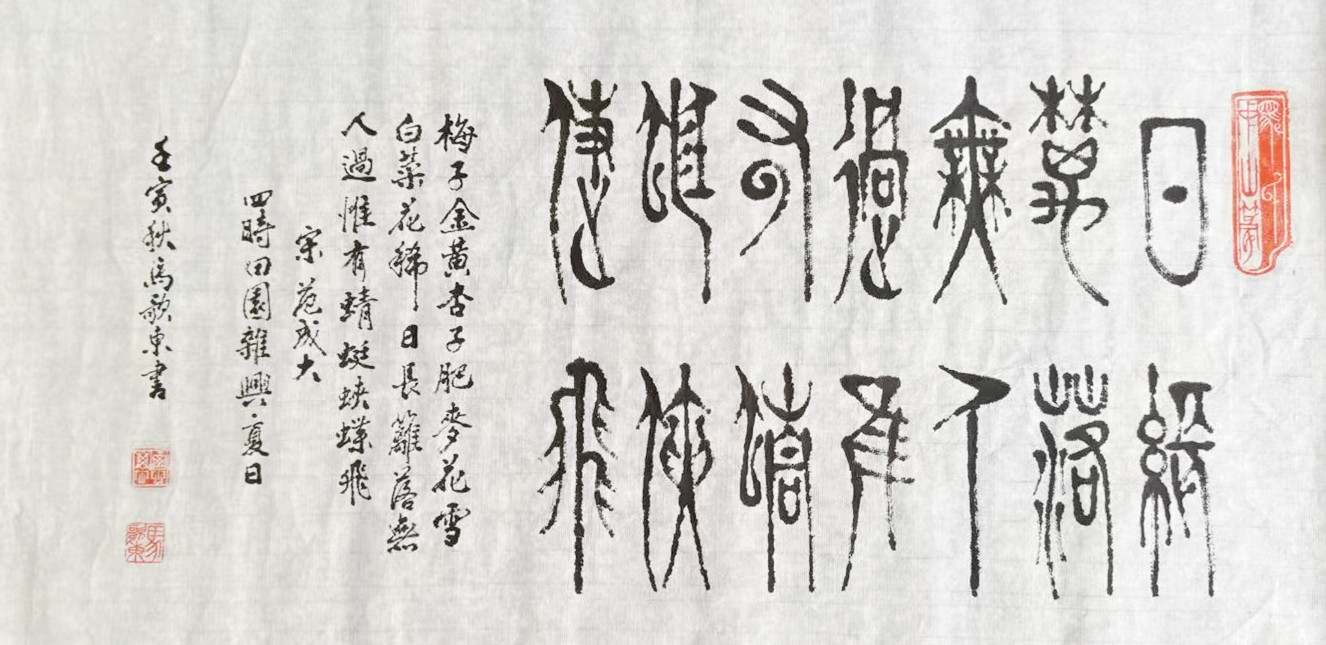 日長
籬落
無人
過惟
有蜻
蜓蛺
蝶飛
梅子金黃杏子肥麥花雪
白菜花稀日長籬落無
人過惟有蜻蜓蛺蝶飛
宋范成大
四時田園雜興·夏日
壬寅秋馬歌東書
馬歌東